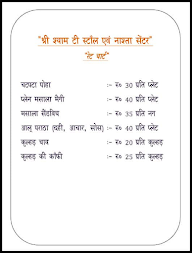 "श्री श्याम टी स्टॉल एवं नाश्ता सेंटर"
"रेट चार्ट"
चटपटा पोहा :- रु० 30 प्रति प्लेट
प्लेन मसाला मैगी :- रु० 40 प्रति प्लेट
मसाला सैंडविच :- रु० 35 प्रति नग
आलू पराठा (दही, आचार, सोस) :- रु० 40 प्रति प्लेट
कुल्हड़ चाय :- रु० 20 प्रति कुल्हड़
कुल्हड़ की कॉफी :- रु० 25 प्रति कुल्हड़